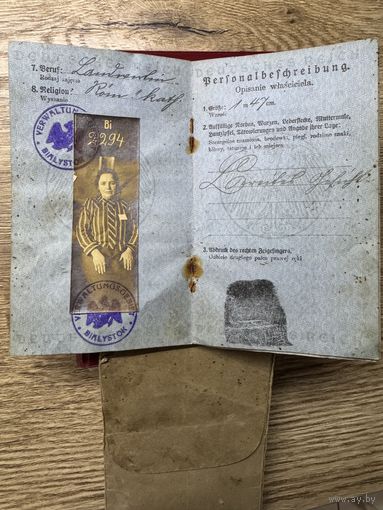 7. Beruf: Landwirtin
Rodzaj zajęcia
8. Religion: Röm. kath.
Wyznanie
VERWALTUNGS
BIALYSTOK
Bi
2294
VERWALTUNGS
BIALYSTOK
Personalbeschreibung.
Opisanie właściciela.
1. Größe: 1 m 47 cm.
Wzrost
2. Auffällige Narben, Warzen, Leberflecke, Muttermale,
und Angabe ihrer Lage.
Szczególne znamiona, brodawki, piegi, rodzime znaki,
i ich miejsce.
3. Abdruck des rechten Zeigefingers.
Odbicie drugiego palca prawej ręki
ay.by